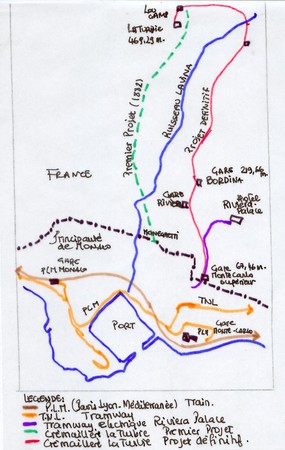 LOU CAMP
LA TURBIE
469,29 m.
Premier Projet (1882)
RUISSEAU LAVINA
PROJET DEFINITIF
FRANCE
GARE BORDINA
GARE RIVIERA
Hotel Riviera-Palace
MONEGHETTI
Principauté de Monaco
GARE PLM MONACO
Gare Monte Carlo superieur
PLM
PORT
TNL
PLM
GARE MONTE-CARLO
LEGENDE:
P.L.M. (Paris Lyon. Méditerranée) Train.
T.N.L. Tramway
Tramway Electrique Riviera Palace
Crémaillère La Turbie Premier Projet
Crémaillère La Turbie Projet définitif.